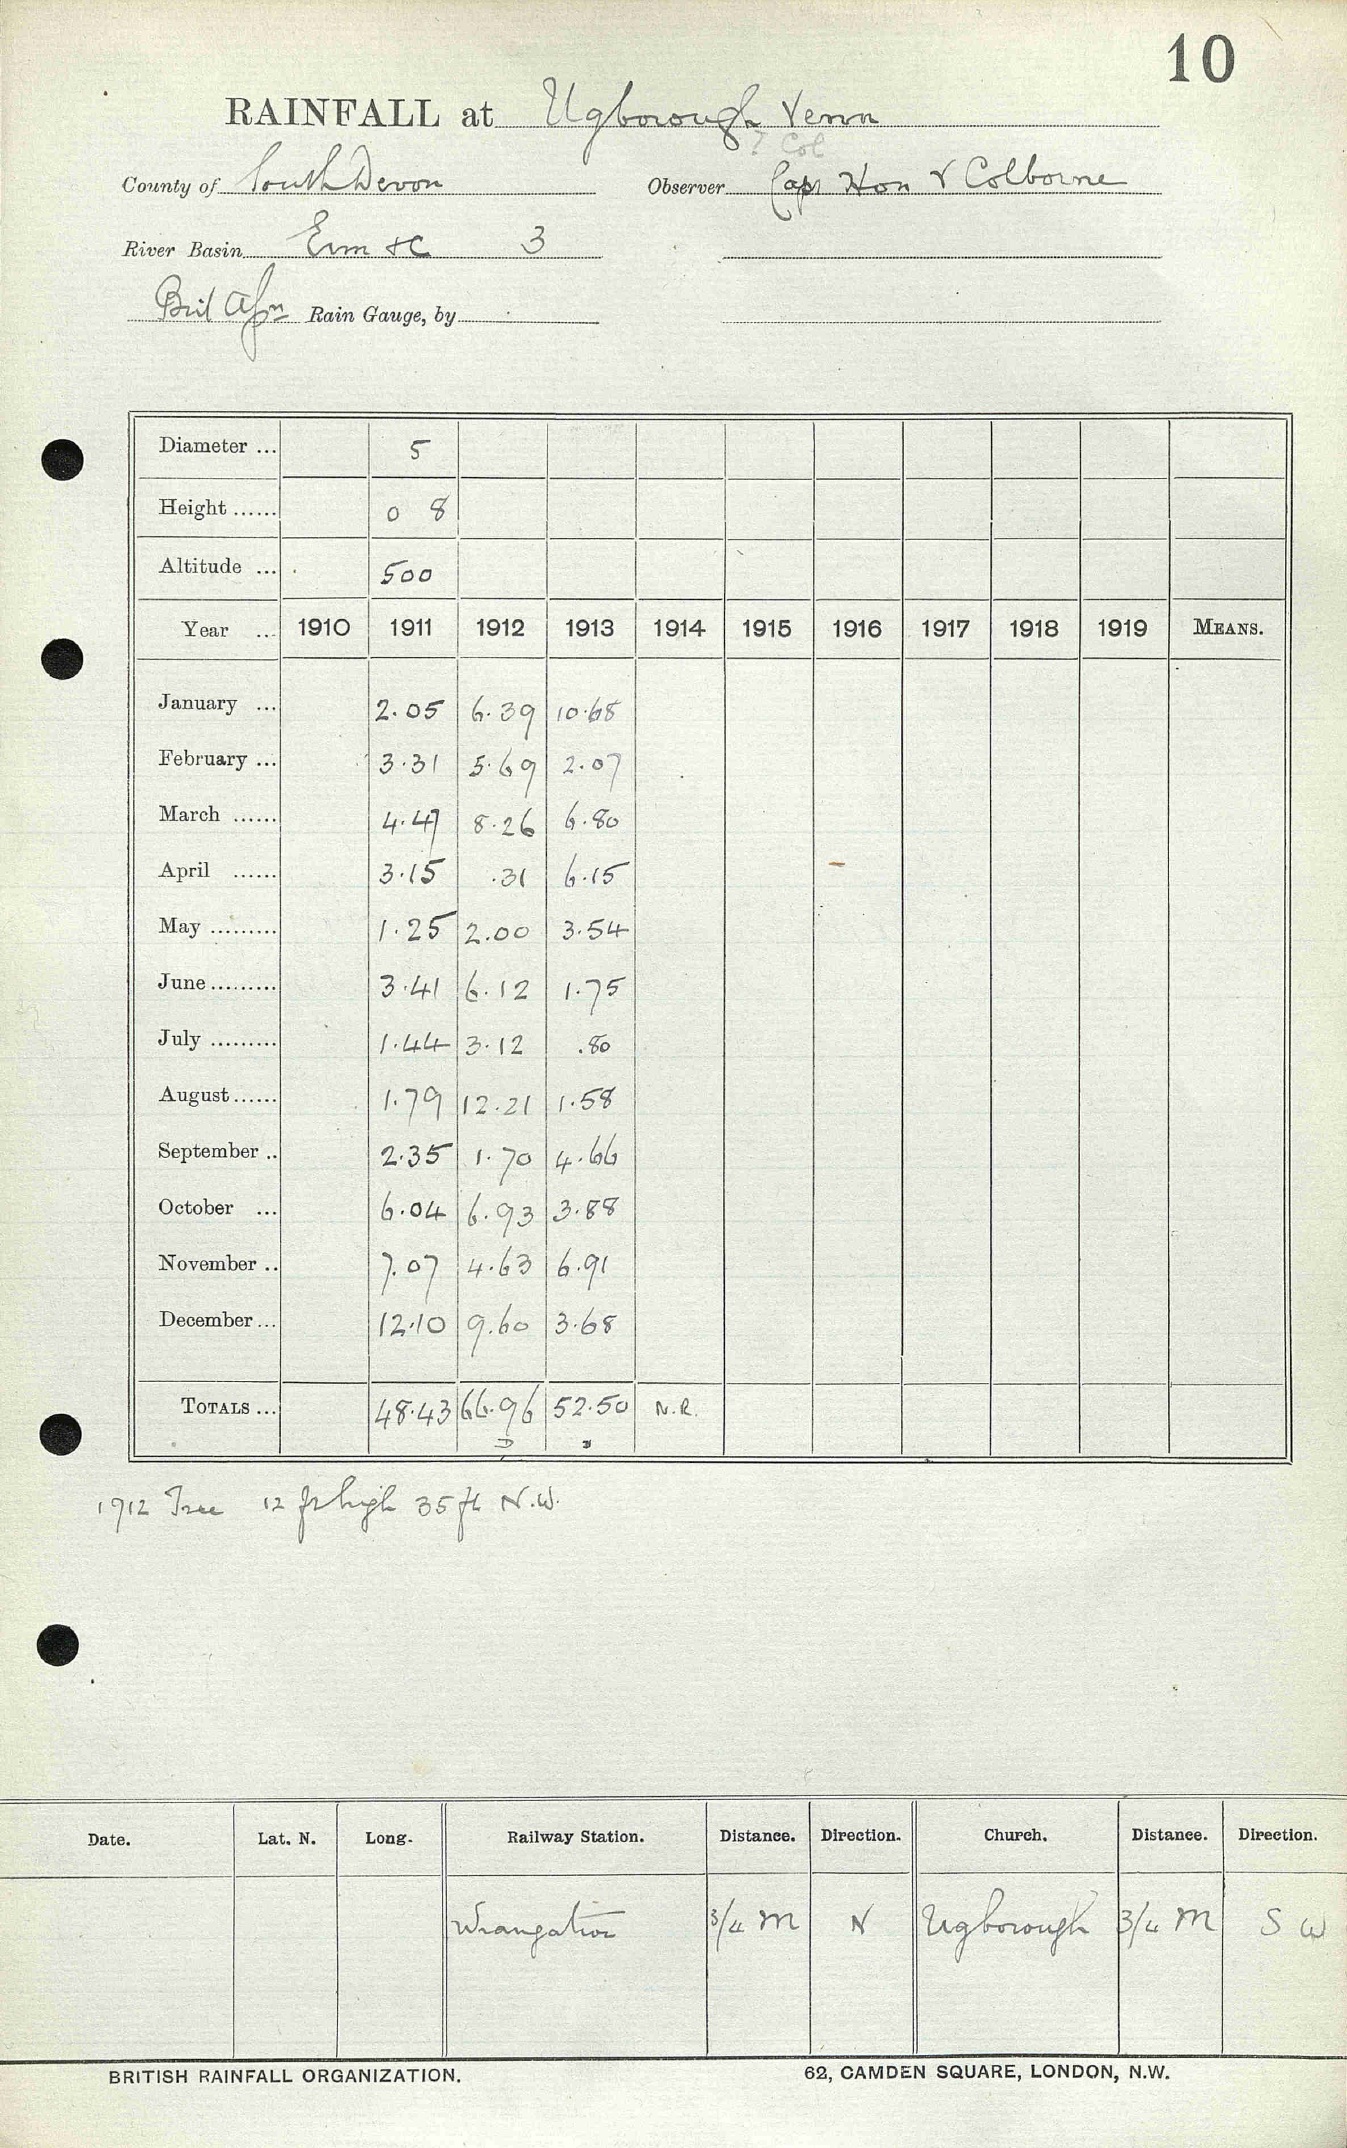 10
RAINFALL at Ugborough Venn
? Col
County of South Devon Observer Capt Hon V Colborne
River Basin Erm &c 3
Rain Gauge, by
Diameter ... 5
Height ...... 0 8
Altitude ... 500
Year ... 1910 1911 1912 1913 1914 1915 1916 1917 1918 1919 MEANS.
January ... 2.05 6.39 10.68
February ... 3.31 5.69 2.07
March ...... 4.47 8.26 6.80
April ...... 3.15 .31 6.15
May ......... 1.25 2.00 3.54
June ......... 3.41 6.12 1.75
July ......... 1.44 3.12 .80
August ...... 1.79 12.21 1.58
September .. 2.35 1.70 4.66
October ... 6.04 6.93 3.88
November .. 7.07 4.63 6.91
December ... 12.10 9.60 3.68
TOTALS ... 48.43 66.96 52.50 N.R.
1912 Tree 12 ft high 35 ft N.W.
Date. Lat. N. Long. Railway Station. Distance. Direction. Church. Distance. Direction.
Wrangaton 3/4 M N Ugborough 3/4 M S W
BRITISH RAINFALL ORGANIZATION. 62, CAMDEN SQUARE, LONDON, N.W.